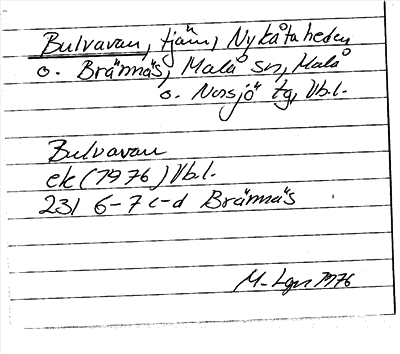 Bulvavan, tjäin, Nykåtaheden
o. Brännäs, Malå sn, Malå
o. Norsjö tg, Vb.l.
Bulvavan
ek (1976) Vb.l.
23I 6-7 c-d Brännäs
M-Lgn 1976